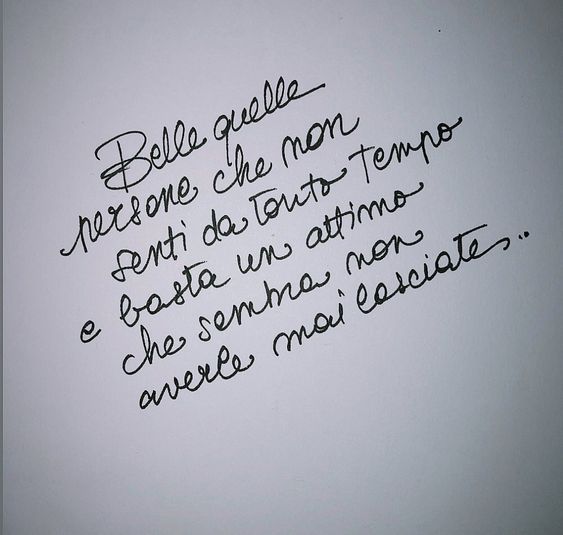 Belle quelle
persone che non
senti da tanto tempo
e basta un attimo
che sembra non
averle mai lasciate..